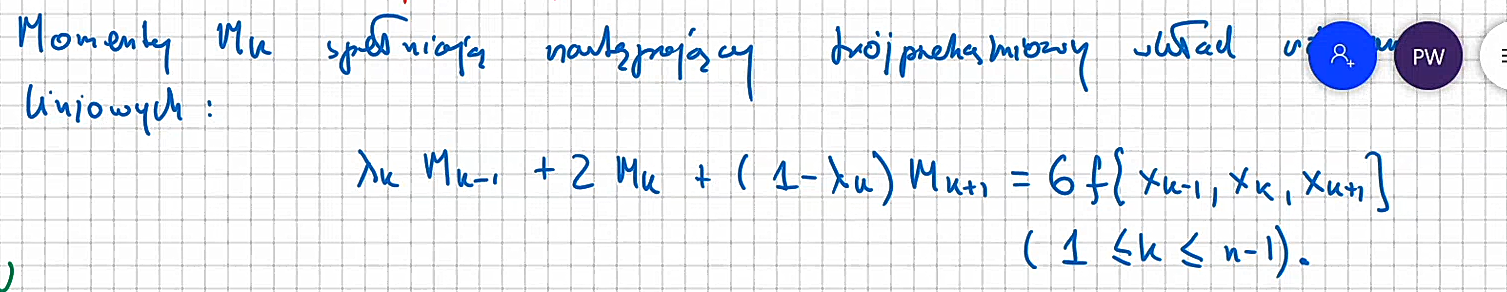 Momenty Mₖ spełniają następujący trójprzekątniowy układ
liniowych :
λₖ Mₖ₋₁ + 2 Mₖ + (1-λₖ) Mₖ₊₁ = 6 f[xₖ₋₁, xₖ, xₖ₊₁]
(1 ≤ k ≤ n-1).
PW